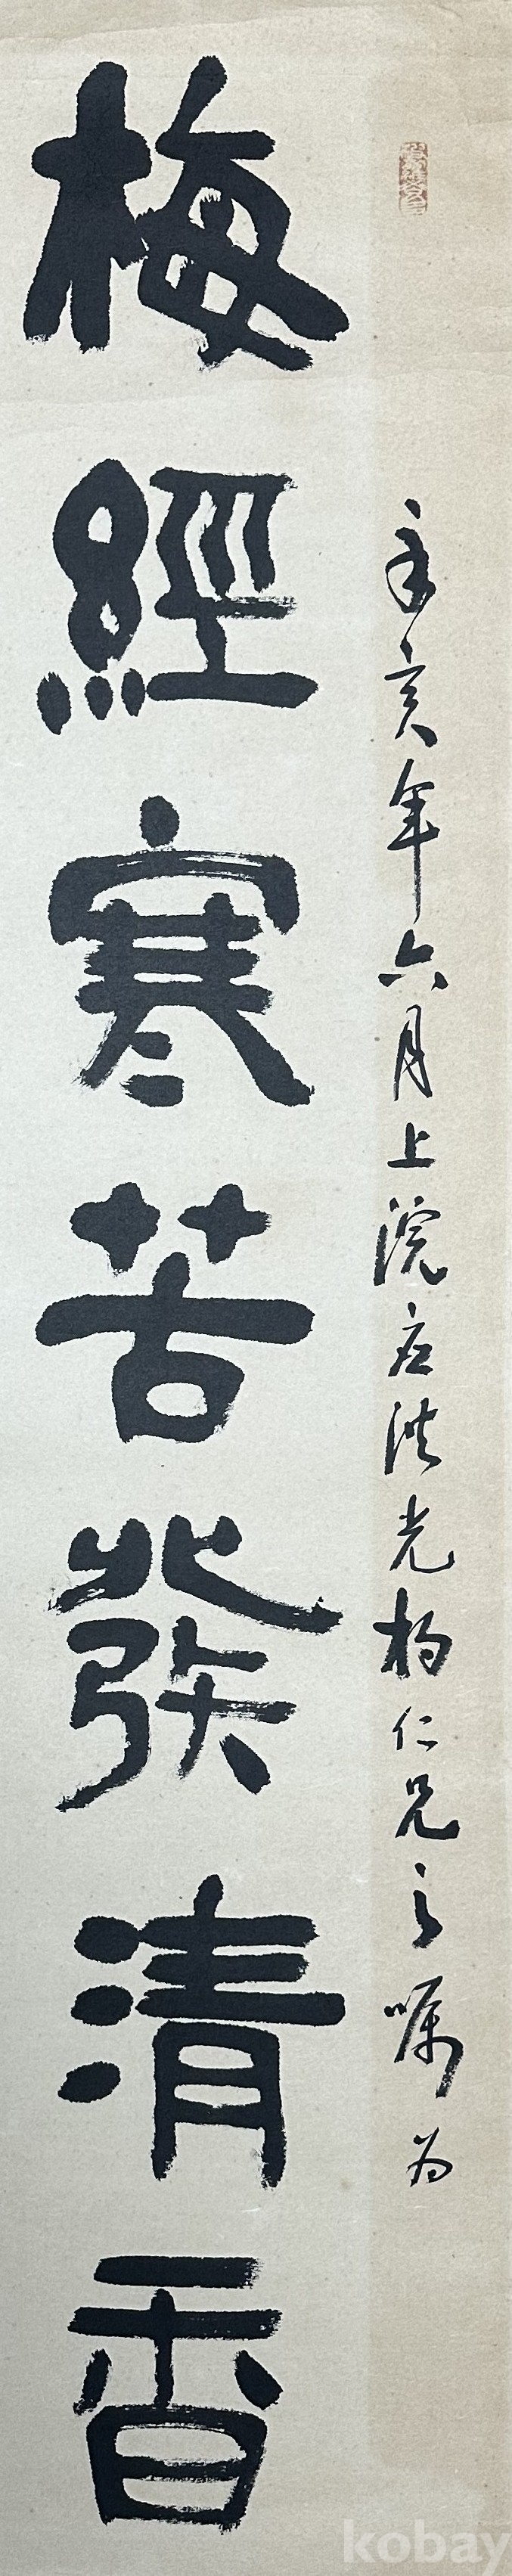 辛亥年六月上浣应洪光楊仁兄之嘱为
梅經寒苦發清香
kobay